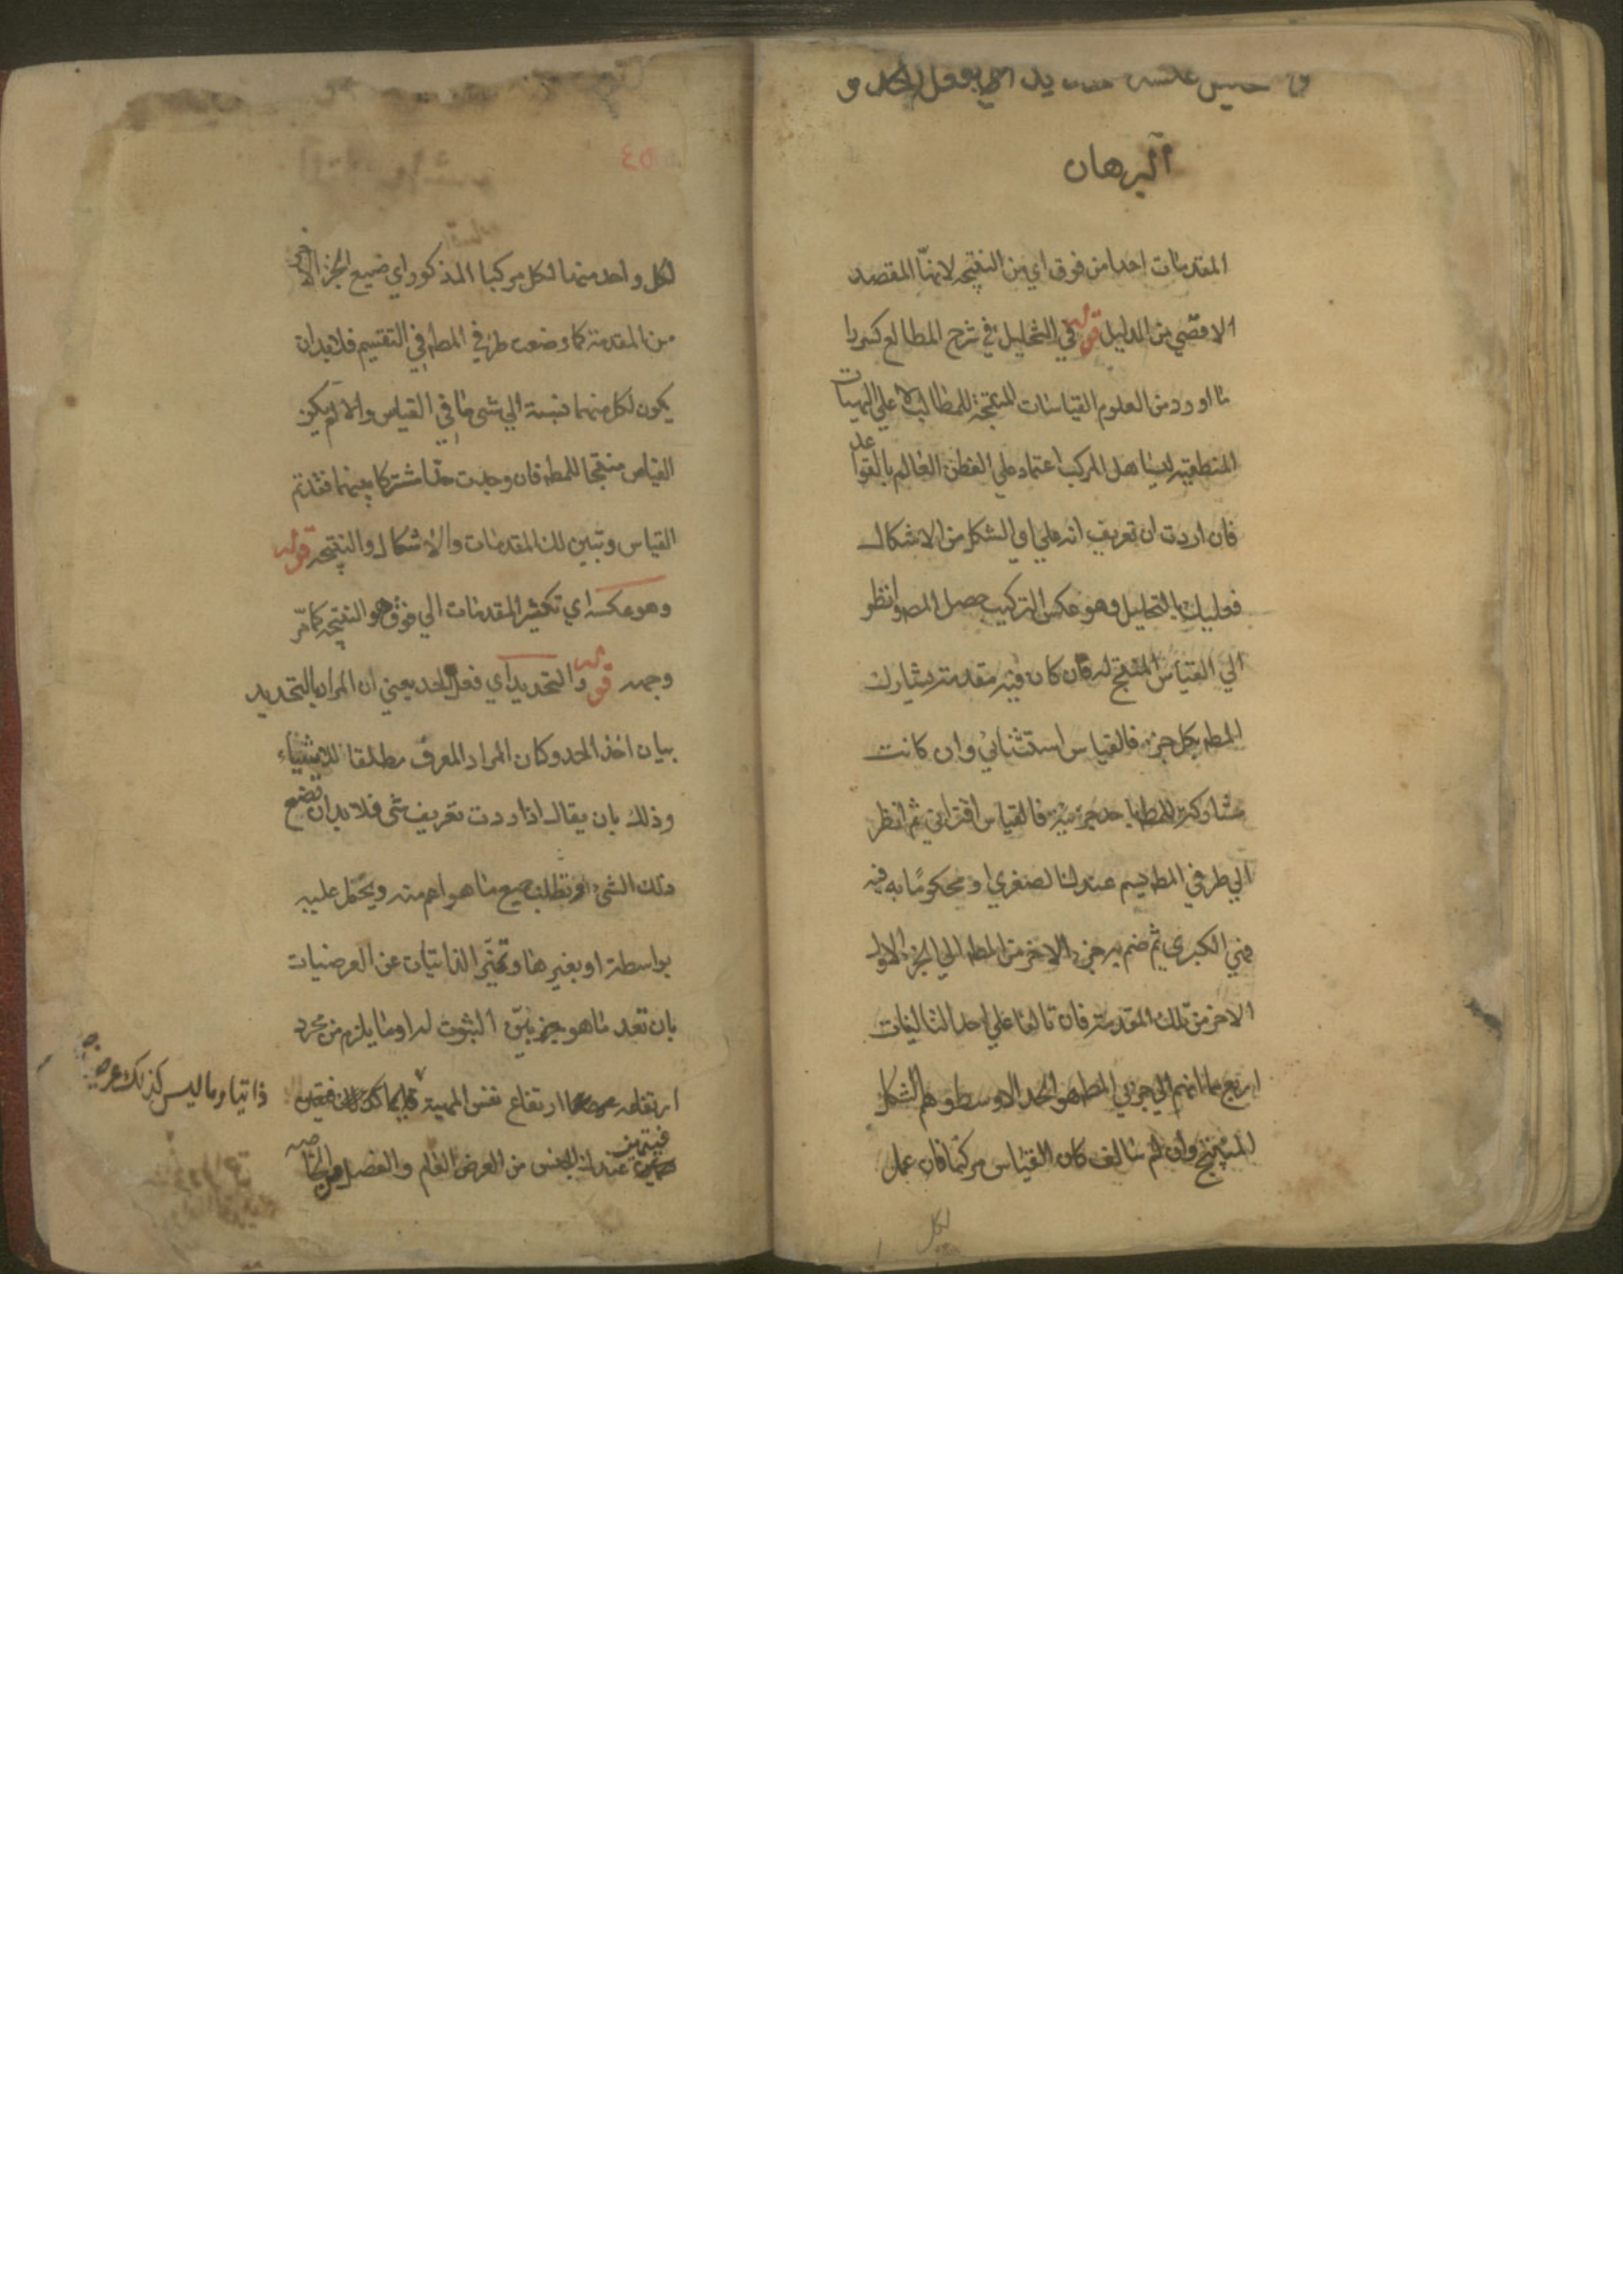 البرهان
المقدمات احدا من فوق اي من النتيجه لانها المقصد
الاقصي من الدليل قوله في التحليل في شرح المطالع كثيرا
ما اورد من العلوم القياسات المنتجة للمطالب لا علي الهيئات
المنطقيه اعتماد علي الفطن العالم بالقواعد
فان اردت ان تعريف انه علي اي الشكل من الاشكال
فعليك بالتحليل وهو عكس التركيب حصل المط وانظر
الي القياس المنتج له فان كان فيه مقدمة يشارك
المط بكل جزء فالقياس استثنائي وان كانت
مشاركة للمط باحد جزئيه فالقياس اقتراني ثم انظر
الي طرفي المط عندك الصغري او محكوما به فيه
فهي الكبري ثم ضم جزء الاخر من المط الي الجزء الاول
الاخر من تلك المقدمة فان تالفا علي احد التاليفات
اربع فما انضم الي جزئي المط هو الحد الاوسط وهم الشكل
المنتج وان لم يتالف كان القياس مركبا فان عمل
لكل
لكل واحد منهما لكل مركبا المذكور اي ضع الجزء الاخر
من المقدمة كما وضعت طرفي المط في التقسيم فلا بد ان
يكون لكل منهما نسبة الي شي ما في القياس والا لم يكن
القياس منتجا للمط فان وجدت حدا مشتركا بينهما فقد تم
القياس وتبين لك المقدمات والاشكال والنتيجه قوله
وهو عكسه اي تكثير المقدمات الي فوق وهو النتيجه كما مر
وجهه قوله والتحديد اي فعل الحد يعني ان المراد بالتحديد
بيان اخذ الحد وكان المراد المعرف مطلقا للاشياء
وذلك بان يقال اذا اردت تعريف شي فلا بد ان تضع
ذلك الشي وتطلب جميع ما هو اعم منه ويحمل عليه
بواسطة او بغيرها وتميز الذاتيات عن العرضيات
بان تعد ما هو بين الثبوت له او ما يلزم من مجرد
ارتفاعه ارتفاع نفس المهية
ذاتيا وما ليس كذلك عرضيا
فيتميز عندك الجنس من العرض العام والفصل من الخاصه